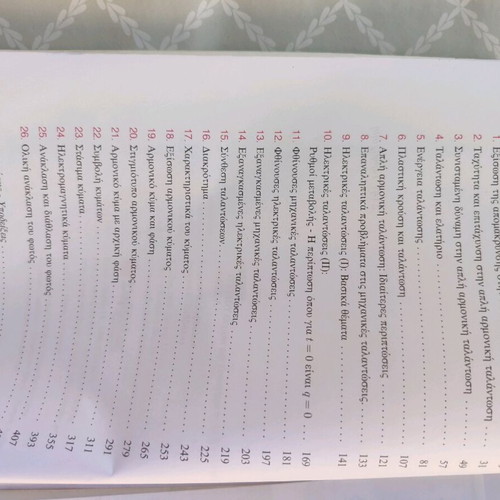 Εξίσωση της απομάκρυνσης στην
2. Ταχύτητα και επιτάχυνση στην απλή αρμονική ταλάντωση . . 31
3. Συνισταμένη δύναμη στην απλή αρμονική ταλάντωση . . . . . 49
4. Ταλάντωση και ελατήριο . . . . . . . . . . . . . . . . 57
5. Ενέργεια ταλάντωσης . . . . . . . . . . . . . . . . . 81
6. Πλαστική κρούση και ταλάντωση . . . . . . . . . . . . 107
7. Απλή αρμονική ταλάντωση: Ιδιαίτερες περιπτώσεις . . . . . 121
8. Επαναληπτικά προβλήματα στις μηχανικές ταλαντώσεις. . . . 133
9. Ηλεκτρικές ταλαντώσεις (Ι): Βασικά θέματα . . . . . . . . 141
10. Ηλεκτρικές ταλαντώσεις (ΙΙ):
Ρυθμοί μεταβολής - Η περίπτωση όπου για t = 0 είναι q = 0 . . 169
11. Φθίνουσες μηχανικές ταλαντώσεις . . . . . . . . . . . . 181
12. Φθίνουσες ηλεκτρικές ταλαντώσεις . . . . . . . . . . . 197
13. Εξαναγκασμένες μηχανικές ταλαντώσεις . . . . . . . . . 203
14. Εξαναγκασμένες ηλεκτρικές ταλαντώσεις . . . . . . . . . 219
15. Σύνθεση ταλαντώσεων. . . . . . . . . . . . . . . . . 225
16. Διακρότημα . . . . . . . . . . . . . . . . . . . . . 243
17. Χαρακτηριστικά του κύματος . . . . . . . . . . . . . . 253
18. Εξίσωση αρμονικού κύματος . . . . . . . . . . . . . . 265
19. Αρμονικό κύμα και φάση . . . . . . . . . . . . . . . . 279
20. Στιγμιότυπο αρμονικού κύματος . . . . . . . . . . . . . 291
21. Αρμονικό κύμα με αρχική φάση . . . . . . . . . . . . . 311
22. Συμβολή κυμάτων . . . . . . . . . . . . . . . . . . . 317
23. Στάσιμα κύματα . . . . . . . . . . . . . . . . . . . 355
24. Ηλεκτρομαγνητικά κύματα . . . . . . . . . . . . . . . 393
25. Ανάκλαση και διάθλαση του φωτός . . . . . . . . . . . . 407
26. Ολική ανάκλαση του φωτός
Υποδείξεις